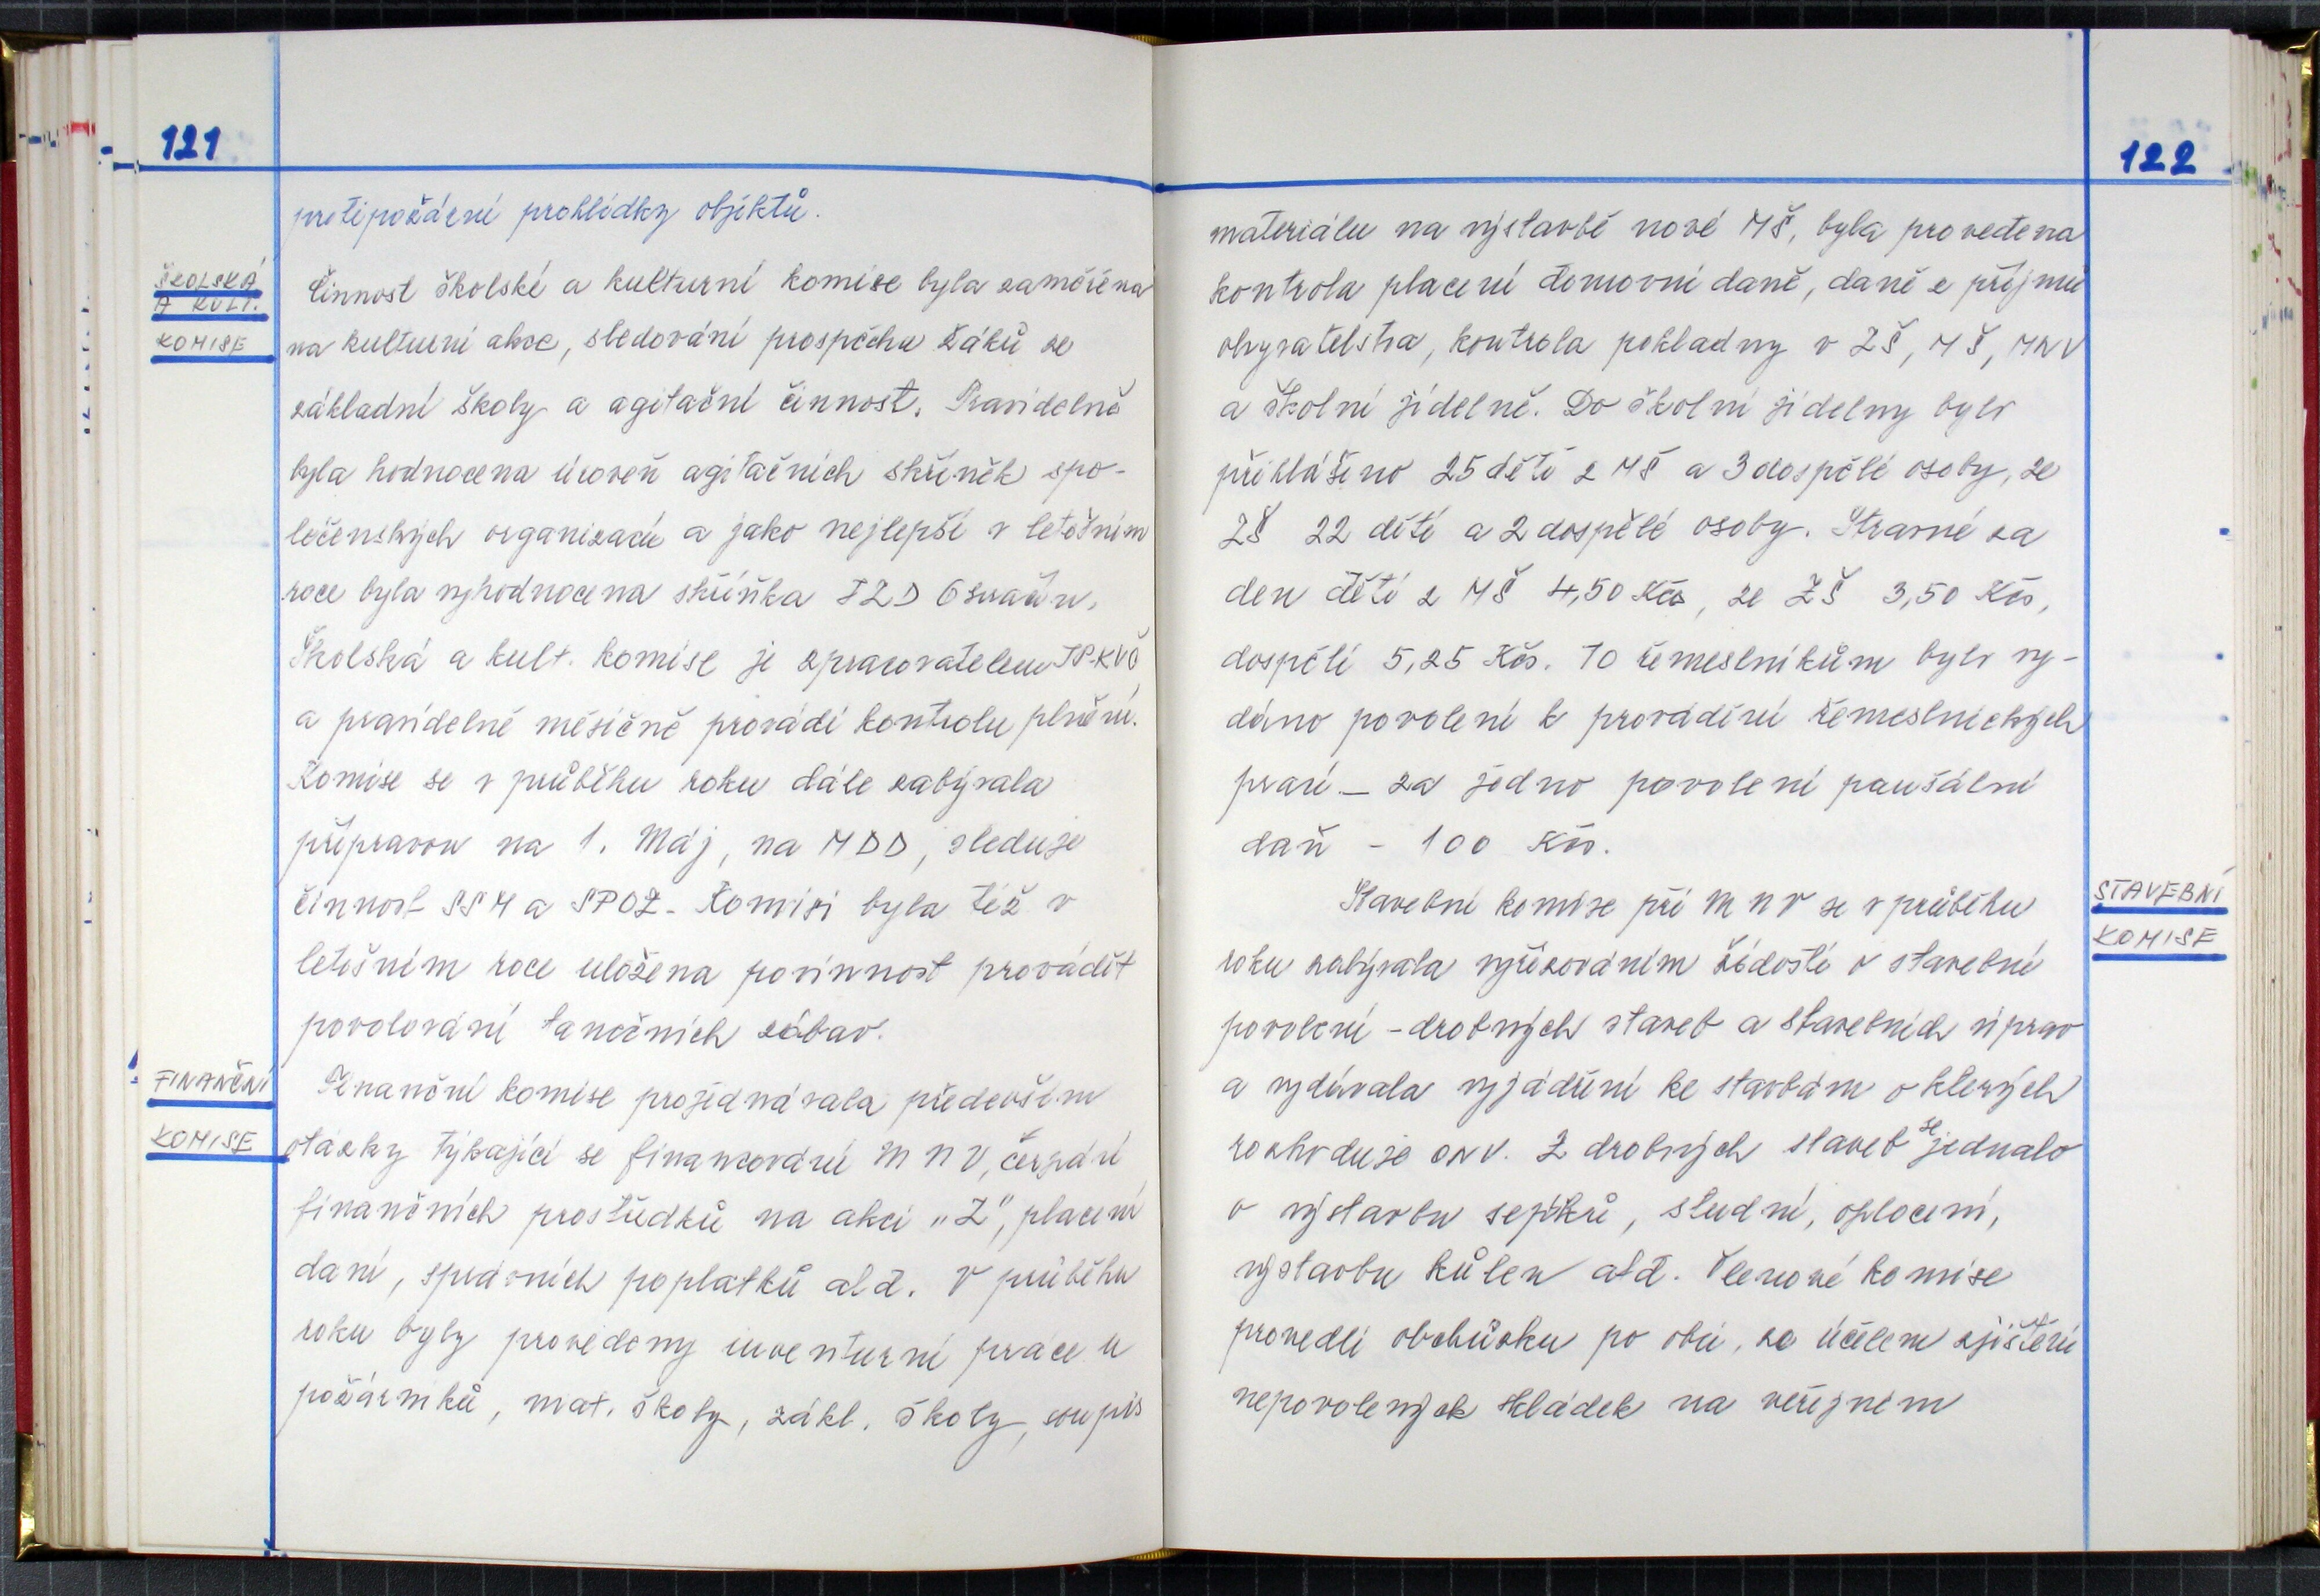 121
protipožární prohlídky objektů.
ŠKOLSKÁ
A KULT.
KOMISE
Činnost školské a kulturní komise byla zaměřena
na kulturní akce, sledování prospěchu žáků ze
základní školy a agitační činnost. Pravidelně
byla hodnocena úroveň agitačních skříněk spo-
lečenských organizací a jako nejlepší v letošním
roce byla vyhodnocena skříňka JZD Osvračín.
Školská a kult. komise je zpracovatelem JP-KVČ
a pravidelně měsíčně provádí kontrolu plnění.
Komise se v průběhu roku dále zabývala
přípravou na 1. Máj, na MDD, sleduje
činnost SSM a SPOZ. Komisi byla též v
letošním roce uložena povinnost provádět
povolování tanečních zábav.
FINANČNÍ
KOMISE
Finanční komise projednávala především
otázky týkající se financování MNV, čerpání
finančních prostředků na akci "Z", placení
daní, správních poplatků atd. V průběhu
roku byly provedeny inventurní práce u
požárníků, mat. školy, zákl. školy, soupis
122
materiálu na výstavbě nové MŠ, byla provedena
kontrola placení domovní daně, daně z příjmů
obyvatelstva, kontrola pokladny v ZŠ, MŠ, MNV
a školní jídelně. Do školní jídelny bylo
přihlášeno 25 dětí z MŠ a 3 dospělé osoby, ze
ZŠ 22 dětí a 2 dospělé osoby. Stravné za
den dětí z MŠ 4,50 Kčs, ze ZŠ 3,50 Kčs,
dospělí 5,25 Kčs. 10 řemeslníkům bylo vy-
dáno povolení k provádění řemeslnických
prací - za jedno povolení paušální
daň - 100 Kčs.
STAVEBNÍ
KOMISE
Stavební komise při MNV se v průběhu
roku zabývala vyřizováním žádostí o stavební
povolení - drobných staveb a stavebních úprav
a vydávala vyjádření ke stavbám o kterých
rozhoduje ONV. Z drobných staveb se jednalo
o výstavbu septiků, studní, oplocení,
výstavbu kůlen atd. Členové komise
provedli obchůzku po obci, za účelem zjištění
nepovolených skládek na veřejném